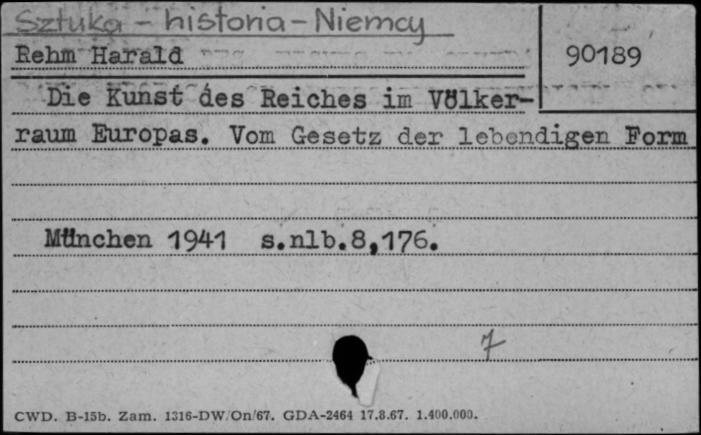 Sztuka - historia - Niemcy
Rehm Harald
90189
Die Kunst des Reiches im Völker-
raum Europas. Vom Gesetz der lebendigen Form
München 1941 s.nlb.8,176.
7
CWD. B-15b. Zam. 1316-DW/On/67. GDA-2464 17.8.67. 1.400.000.